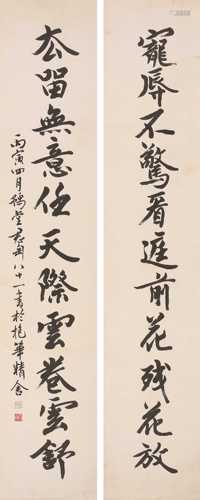 寵辱不驚看庭前花残花放
去留無意任天際雲卷雲舒
丙寅四月堂八十一書於挹華精舍